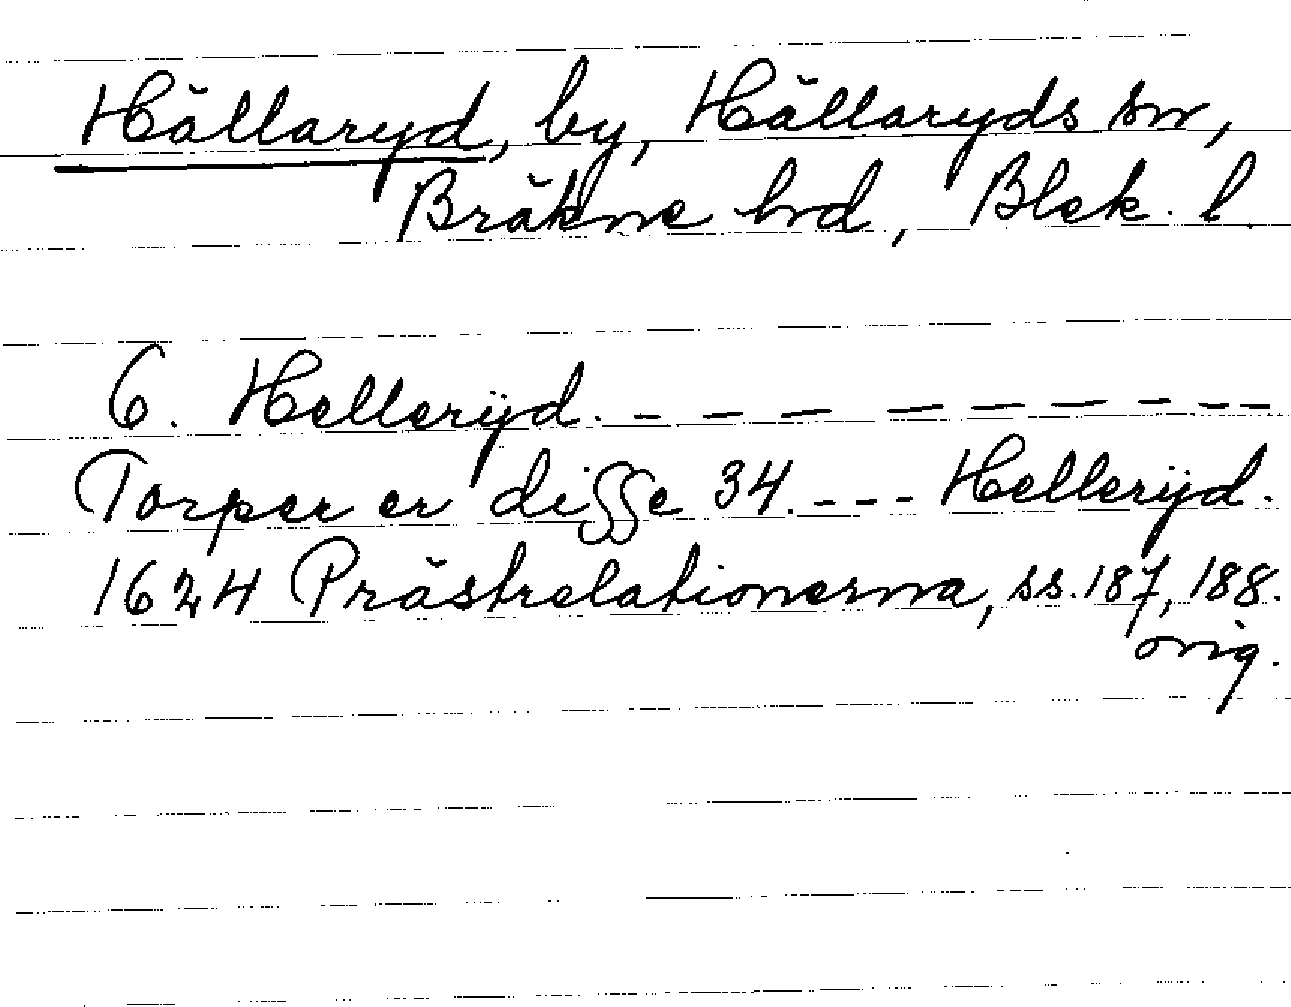 Hällaryd, by, Hällaryds sn,
Bräkne hd, Blek. l.
6. Hellerÿd. - - - - - - - - -
Torper er disse 34. - - - Hellerÿd.
1624 Prästrelationerna, ss. 187, 188.
orig.